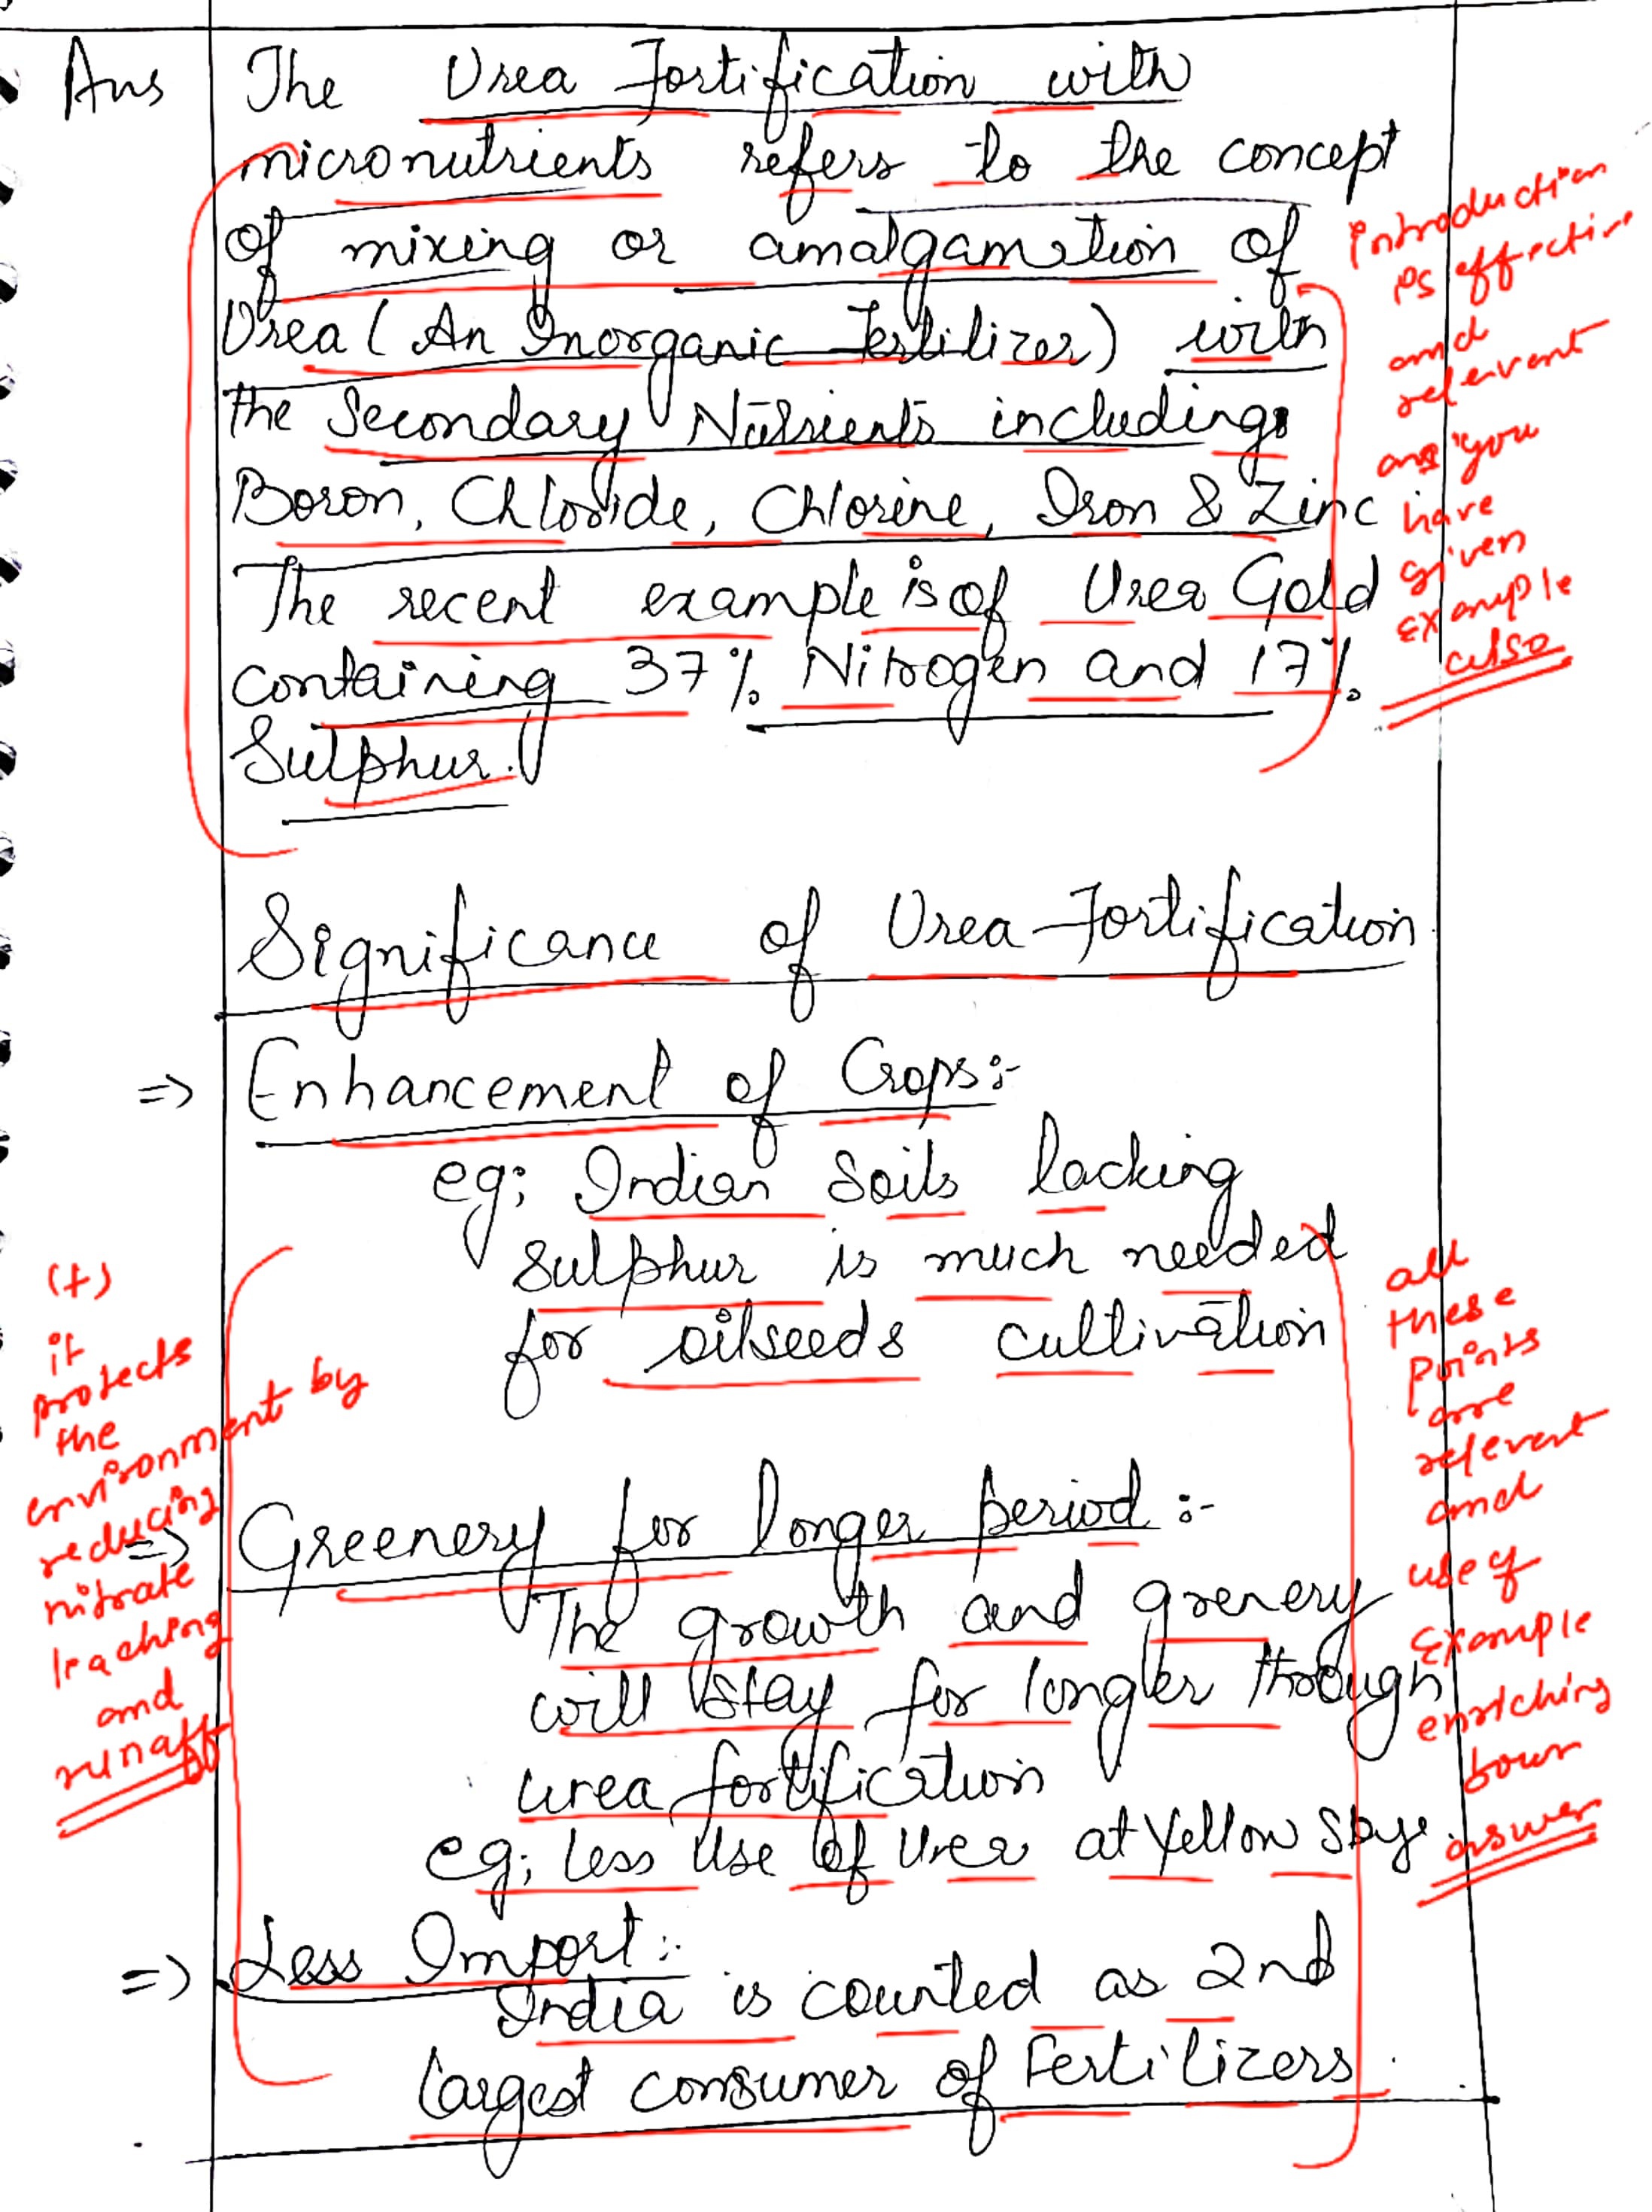 Ans The Urea Fortification with
micronutrients refers to the concept
of mixing or amalgamation of
Urea (An Inorganic Fertilizer) with
the Secondary Nutrients including
Boron, Chloride, Chlorine, Iron & Zinc
The recent example is of Urea Gold
containing 37% Nitrogen and 17%
Sulphur.
Introduction
is effective
and
relevant
as you
have
given
example
also
Significance of Urea Fortification
=> Enhancement of Crops:-
eg; Indian Soils lacking
Sulphur is much needed
for oilseeds cultivation
=> Greenery for longer period :-
The growth and grenery
will stay for longer through
urea fortification
eg; less Use of Urea at Yellow
=> Less Import:-
India is counted as 2nd
largest consumer of Fertilizers.
(+)
it
protects
the
environment by
reducing
nitrate
leaching
and
runaff
all
these
points
are
relevent
and
use of
example
enriching
your
answer